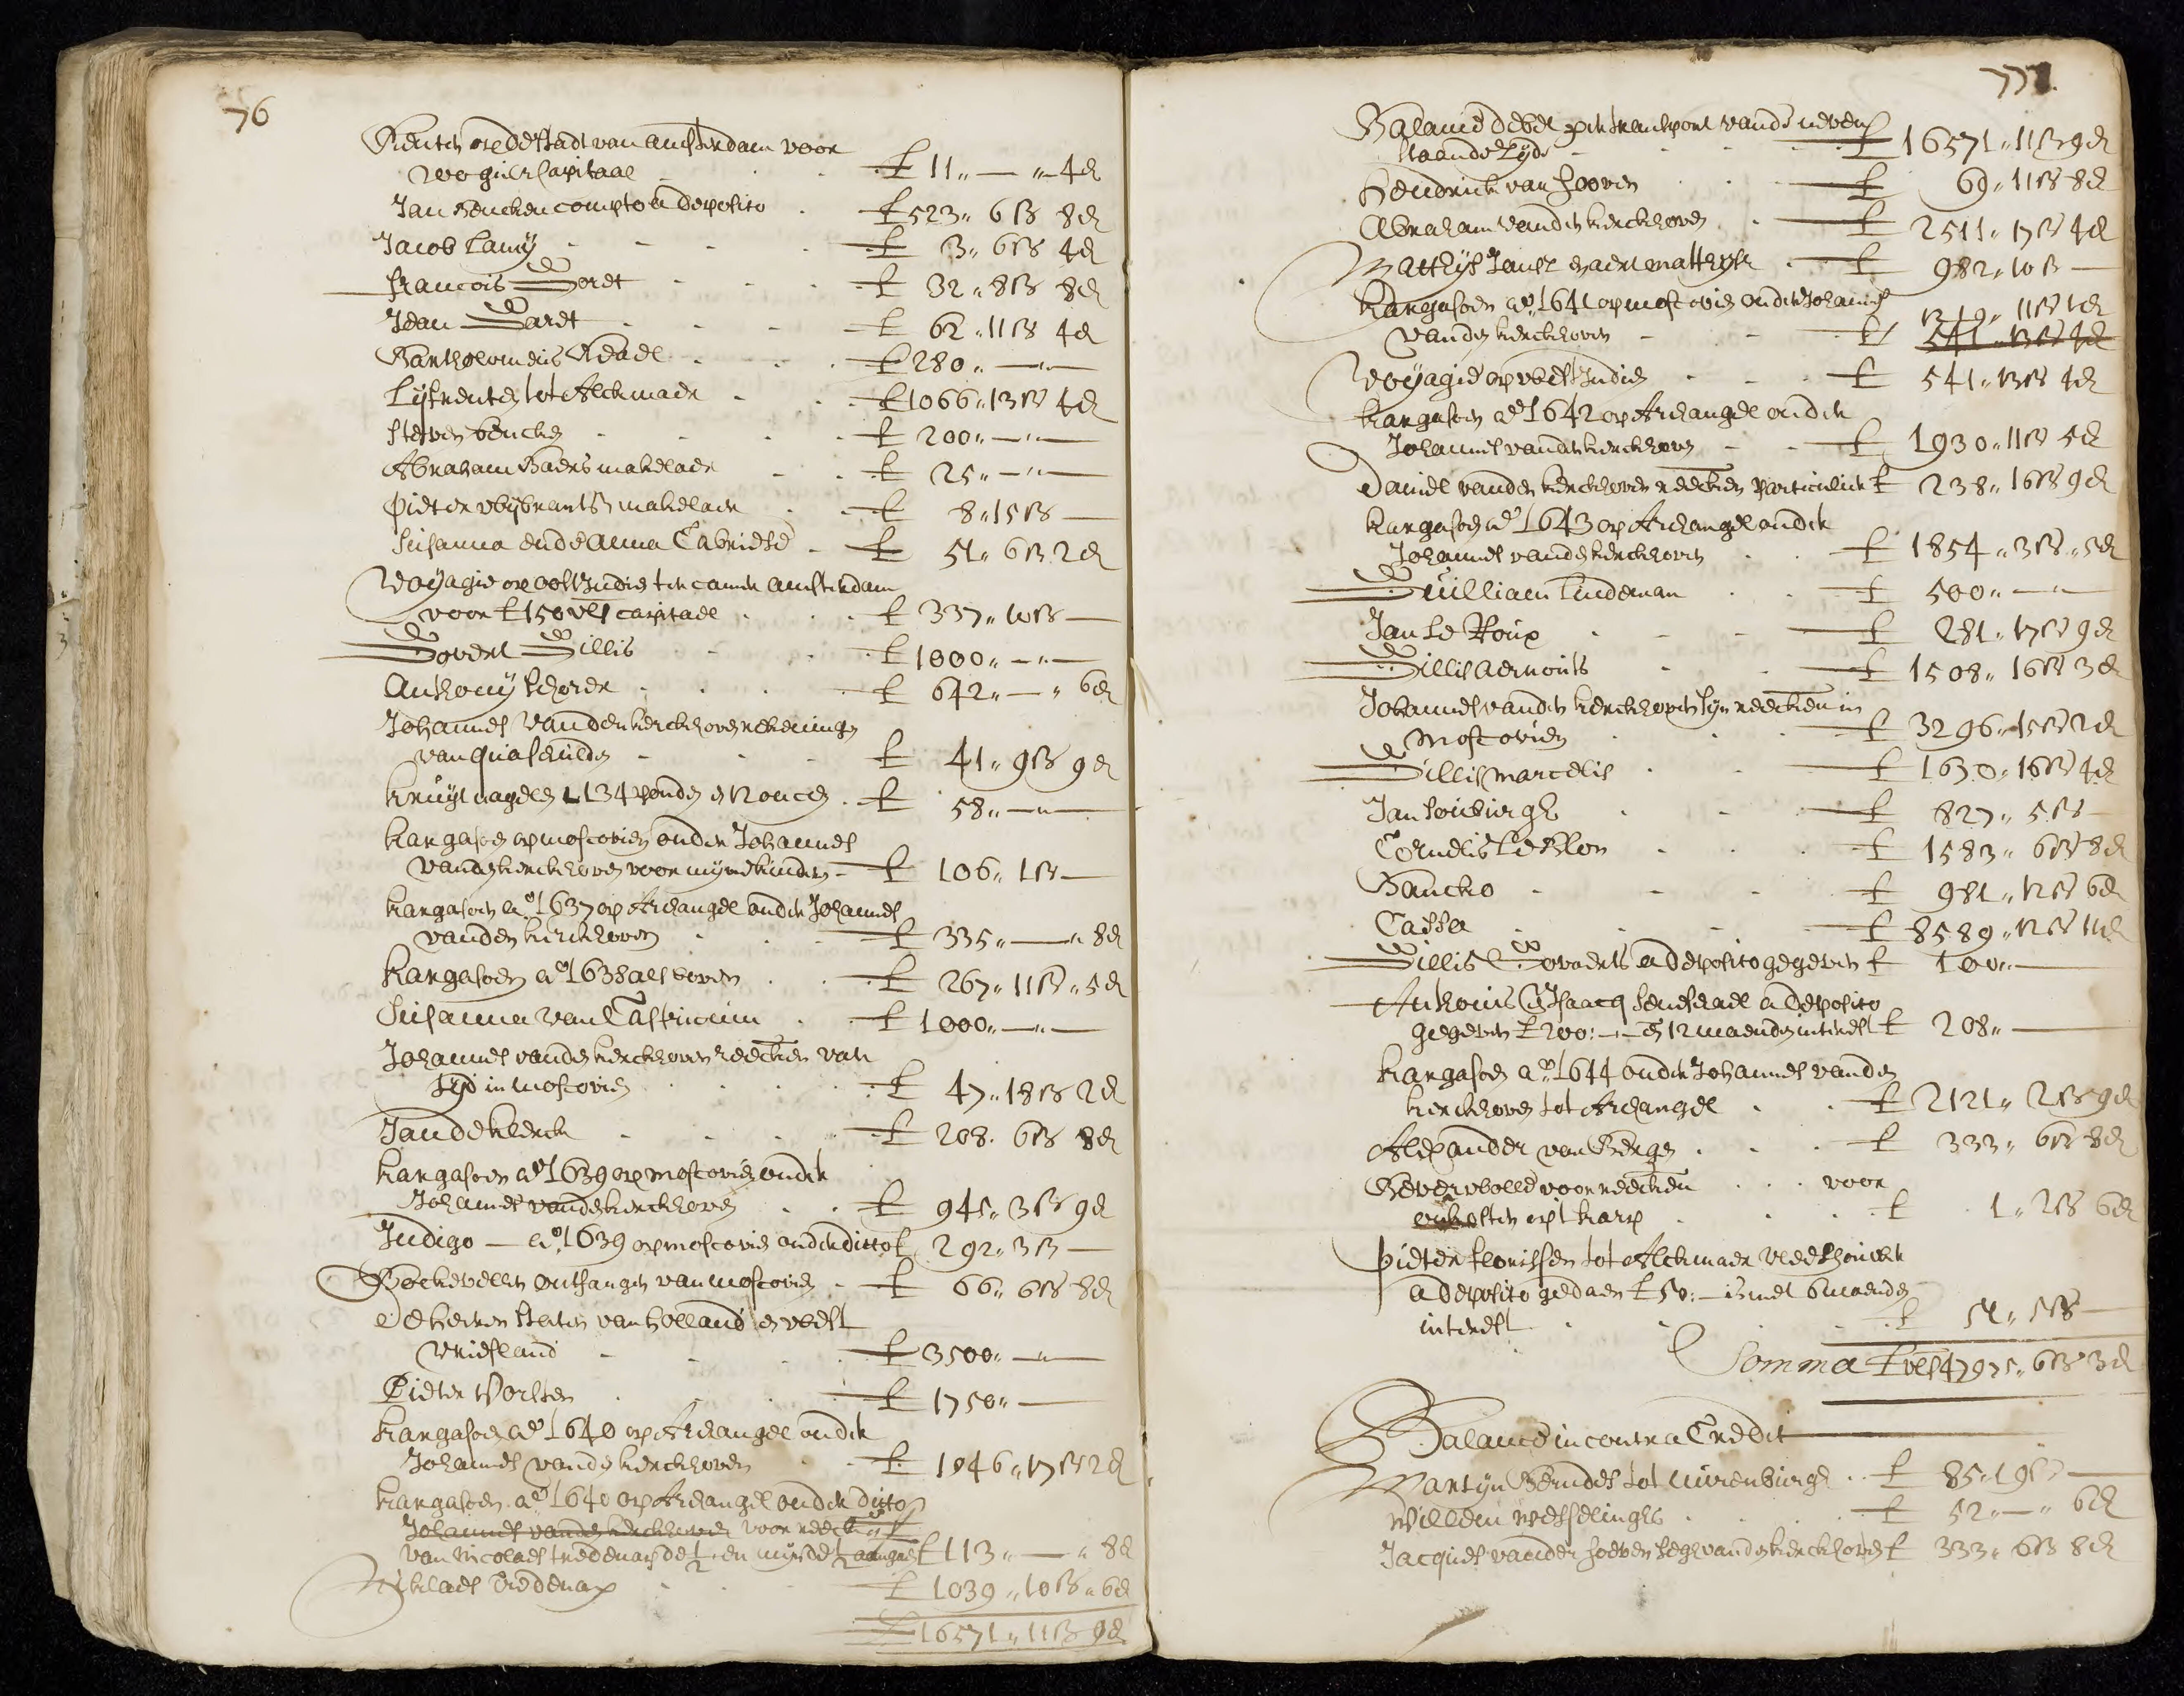 76
Renten op de Stadt van Amsterdam voor
capitaal £ 11 „ — „ 4 d
Jan Bencken compto a deposito £ 523 „ 6 ß 8 d
Jacob Lamy £ 3 „ 6 ß 4 d
francois Goret £ 32 „ 8 ß 8 d
Jean Garet £ 62 „ 11 ß 4 d
Bartholomeus Reael £ 280 „ — „ —
Lijfrenten tot Alckmaer £ 1066 „ 13 ß 4 d
Steven Bencken £ 200 „ — „ —
Abraham Baers makelaer £ 25 „ — „ —
Pieter Wijbrants makelaer £ 8 „ 15 ß —
Susanna ende Anna Cabriese £ 51 „ 6 ß 2 d
Voyagie op oost Indie ter camer Amsterdam
voor £ 150 vls capitael £ 337 „ 10 ß —
Govert Gillis £ 1000 „ — „ —
Anthony Schorer £ 642 „ — „ 6 d
Johannes vanden kerckhoven rekeninge
van quaschulden £ 41 „ 9 ß 9 d
kruijt nagelen 134 ponden 12 oncen £ 58 „ — „ —
kargasoen op moscovien onder Johannes
vanden kerckhoven voor mijne kinders £ 106 „ 1 ß —
kargasoen ao 1637 op Archangel onder Johannes
vanden kerckhoven £ 335 „ — „ 8 d
kargasoen ao 1638 als boven £ 267 „ 11 ß „ 5 d
Susanna van Castricum £ 1000 „ — „ —
Johannes vanden kerckhoven reecken van
tijd in moscovien £ 47 „ 18 ß 2 d
Jan de klerck £ 208 „ 6 ß 8 d
kargasoen ao 1639 op moscovien onder
Johannes vanden kerckhoven £ 945 „ 3 ß 9 d
Indigo — ao 1639 op moscovien onder ditto £ 292 „ 3 ß —
Bockevellen ontfangen van moscovien £ 66 „ 6 ß 8 d
De heeren staten van holland en west
vriesland £ 3500 „ — „ —
Pieter Vorsten £ 1750 „ —
kargasoen ao 1640 op Archangel onder
Johannes vanden kerckhoven £ 1046 „ 17 ß 2 d
kargasoen ao 1640 op Archangel onder ditto
Johannes vanden kerckhoven voor reecken
van Nicolaes tredenap de 1/2 en mijn de 1/2 £ 113 „ — „ 8 d
Niklaes Tredenap £ 1039 „ 10 ß „ 6 d
£ 16571 „ 11 ß 9 d
777
Balance debet per transport vande neven
staande zyde £ 16571 „ 11 ß 9 d
Hendrick van Hoven £ 69 „ 11 ß 8 d
Abraham vanden kerckhoven £ 2511 „ 17 ß 4 d
Matthijs Jansz Evaert Matthysz £ 982 „ 10 ß —
kargasoen ao 1641 op moscovien onder Johannes
vanden kerckhoven £ 1349 „ 11 ß 1 d
541 „ 13 ß 4 d
Voyagie op west Indien £ 541 „ 13 ß 4 d
kargasoen ao 1642 op Archangel onder
Johannes vanden kerckhoven £ 1930 „ 11 ß 5 d
Daniel vanden kerckhoven reecken particulier £ 238 „ 16 ß 9 d
kargasoen ao 1643 op Archangel onder
Johannes vanden kerckhoven £ 1854 „ 3 ß „ 5 d
Guilliam Lindeman £ 500 „ — „ —
Jan le Roux £ 281 „ 17 ß 9 d
Gillis Aernouts £ 1508 „ 16 ß 3 d
Johannes vanden kerckhoven syn reecken in
Moscovien £ 3296 „ 15 ß 2 d
Gillis Marcelis £ 1630 „ 16 ß 4 d
Jan Souburgh £ 827 „ 5 ß —
Cornelis le Blon £ 1583 „ 6 ß 8 d
Bancko £ 981 „ 12 ß 6 d
Cassa £ 8589 „ 12 ß 11 d
Gillis Govaerts a deposito gegeven £ 100 „ —
Anthonis & Isaacq Seneschael a deposito
gegeven £ 200 : — en 12 maenden interest £ 208 „ —
kargasoen ao 1644 onder Johannes vanden
kerckhoven tot Archangel £ 2121 „ 2 ß 9 d
Alexander van Bergen £ 333 „ 6 ß 8 d
Bever wolle voor reecken voor
oncosten op 't karp £ 1 „ 2 ß 6 d
Pieter florissen tot Alckmaer
a deposito gedaen £ 50 : — is met 6 maenden
interest £ 51 „ 5 ß —
Somma £ vls 47975 „ 6 ß 3 d
Balance in contra Credit
Martyn Berndes tot Nurenburgh £ 85 „ 19 ß —
Willem Wesselinghs £ 52 „ — „ 6 d
Jacques vander hoeven seghe vanden kerckhoven £ 333 „ 6 ß 8 d